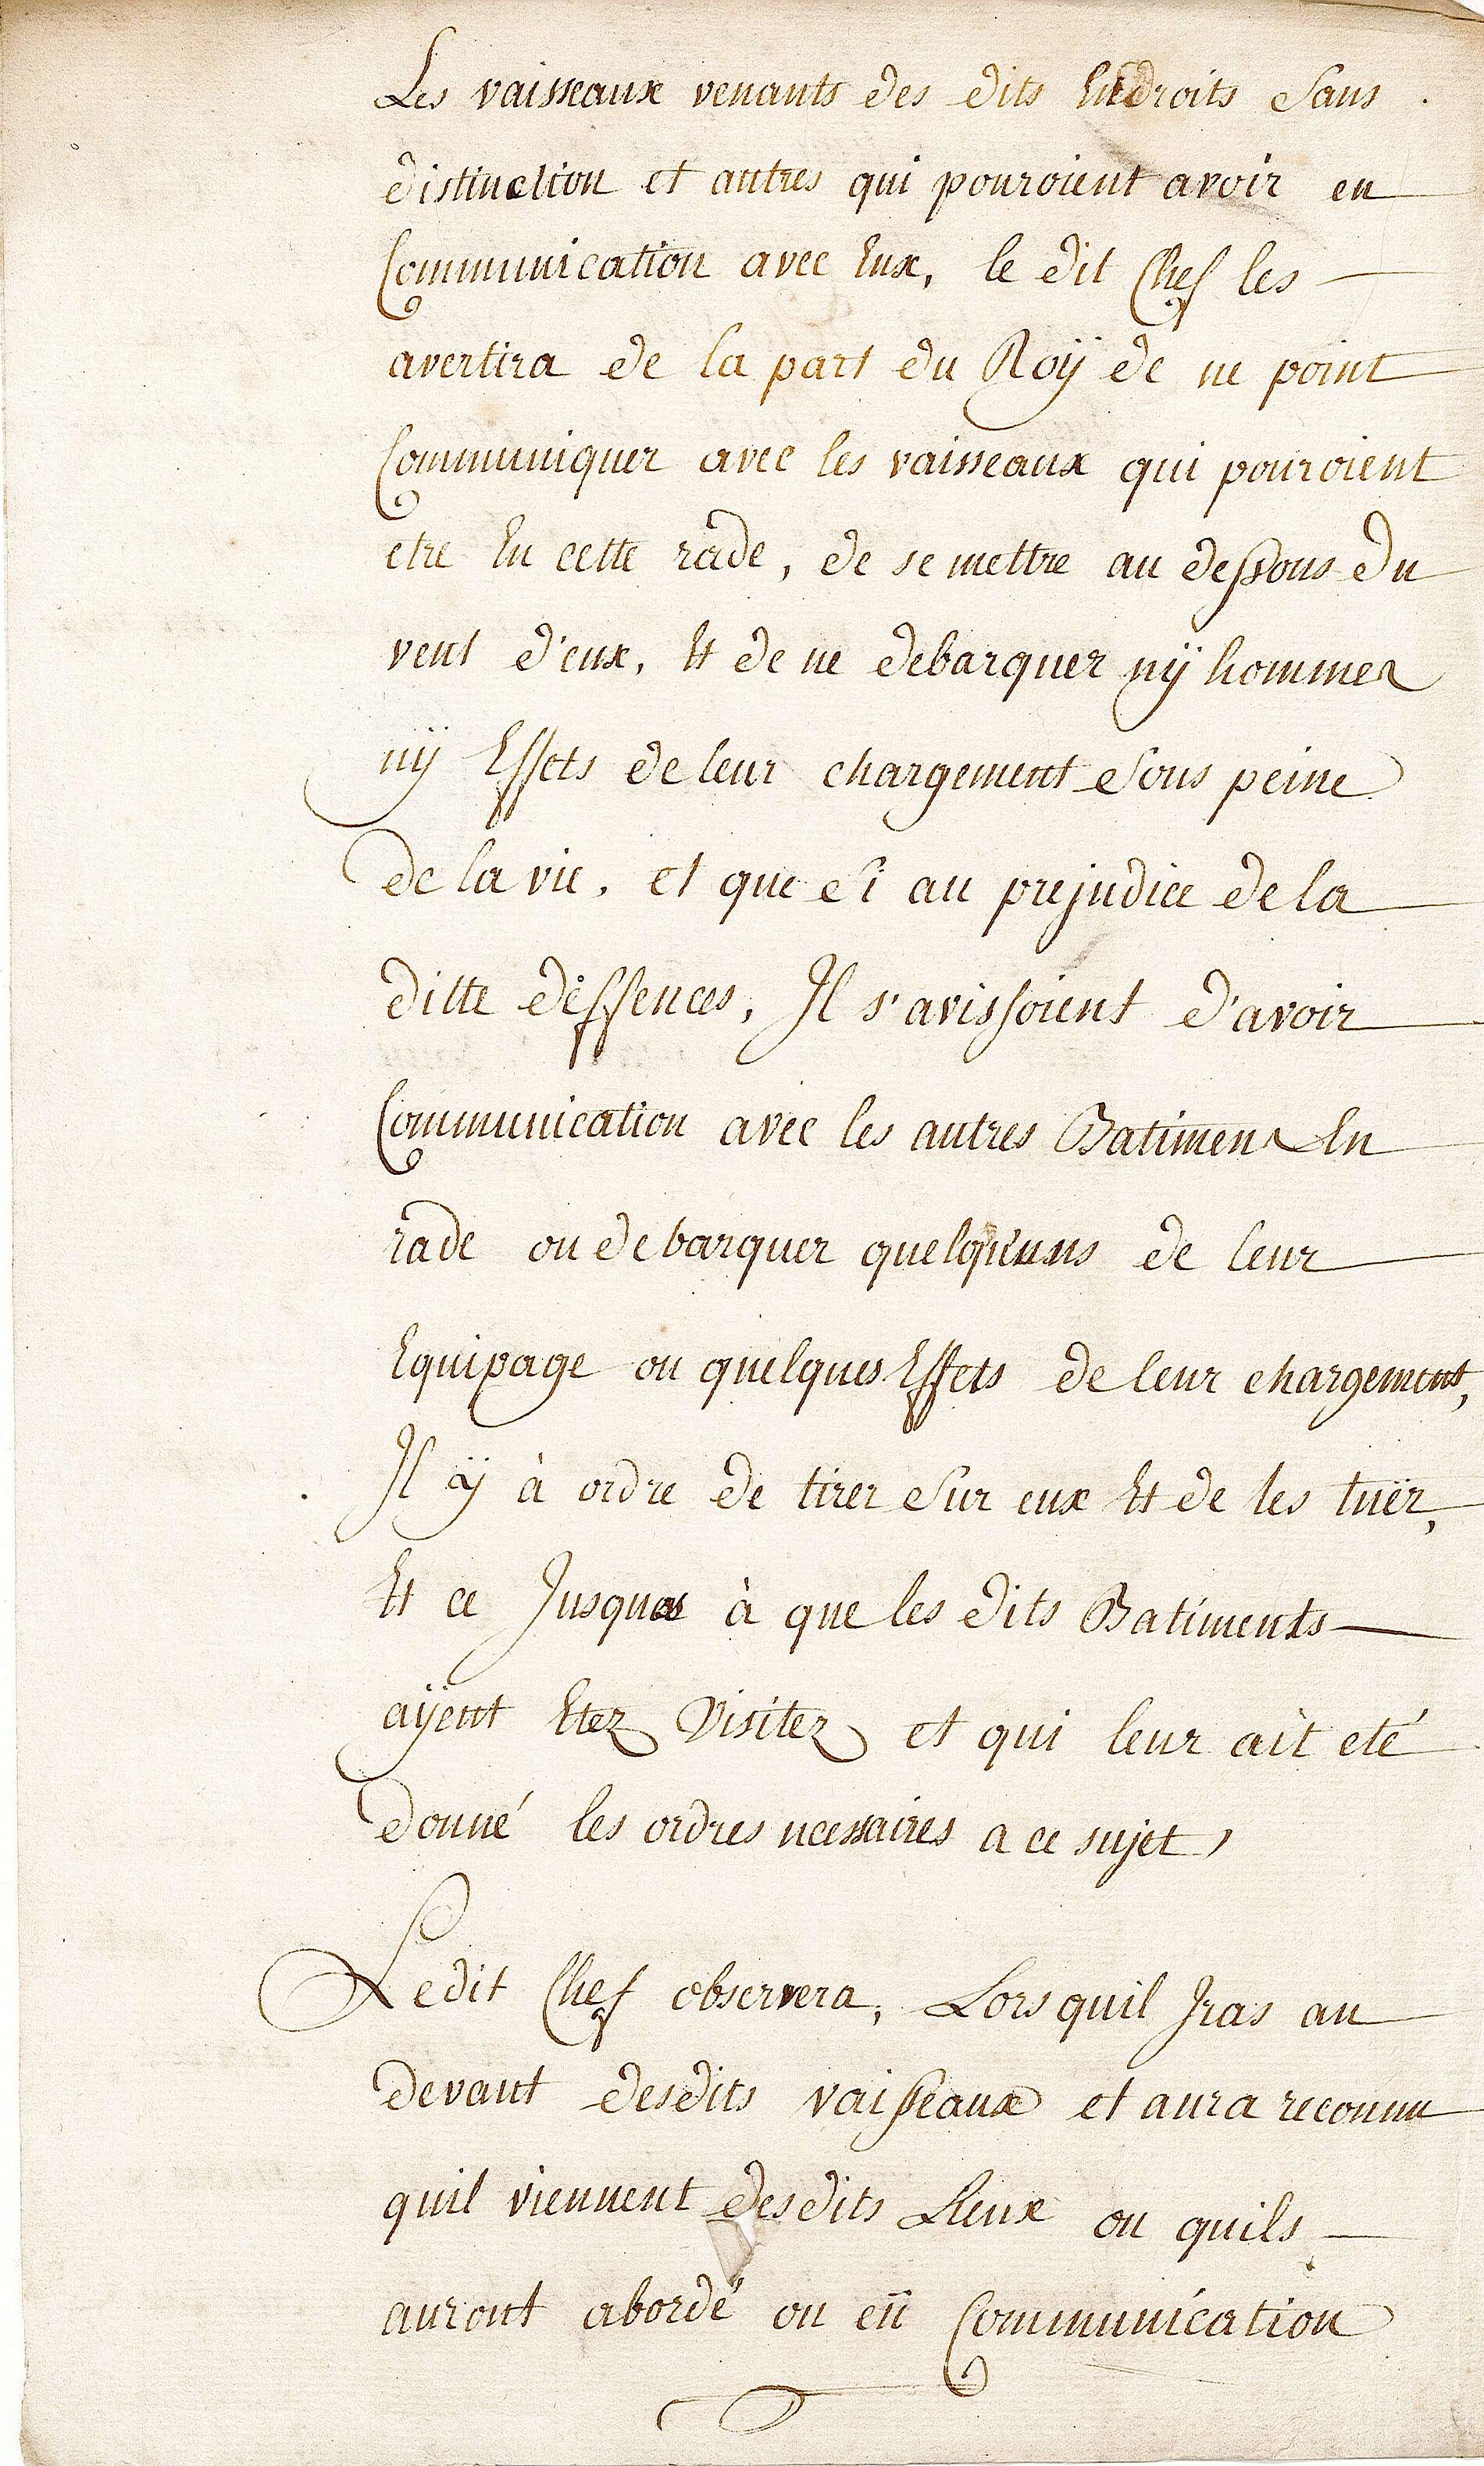 Les vaisseaux venants des dits Endroits Sans
distinction et autres qui pouroient avoir eu
Communication avec Eux, le dit Chef les
avertira de la part du Roÿ de ne point
Communiquer avec les vaisseaux qui pouroient
etre En cette rade, de se mettre au dessous du
vent d'eux, Et de ne debarquer nÿ hommes
nÿ Effets de leur chargement Sous peine
de la vie, et que Si au prejudice de la
ditte deffences, Il s'avissoient d'avoir
Communication avec les autres Batimens En
rade ou debarquer quelqu'uns de leur
Equipage ou quelques Effets de leur chargement,
Il ÿ à ordre de tirer Sur eux Et de les tuër,
Et ce Jusques à que les dits Batiments
aÿent Etez Visitez et qui leur ait eté
donné les ordres ncessaires a ce sujet,
Ledit Chef observera, Lors quil Jras au
devant desdits vaisseaux et aura reconnu
quil viennent desdits Lieux ou quils
auront abordé ou eü Communication